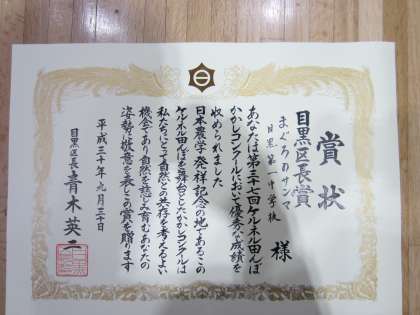 賞状
目黒区長賞
まぐろのサンマ
目黒第一中学校
様
あなたは第三七回ケルネル田んぼ
かかしコンクールにおいて優秀な成績を
収められました
日本農学発祥記念の地であるこの
ケルネル田んぼを舞台としたかかしコンクールは
私たちにとって自然との共存を考えるよい
機会であり自然を慈しみ育むあなたの
姿勢に敬意を表しこの賞を贈ります
平成三十年九月三十日
目黒区長 青木英二